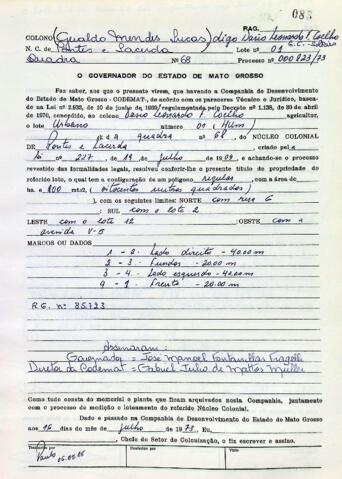 083
PAG.
COLONO (Gualdo Mendes Lucas) digo Dario Leonardo P. Coelho
N. C. de Pontes e Lacerda Lote nº 01
Quadra Nº 68 Processo nº 000823/73
O GOVERNADOR DO ESTADO DE MATO GROSSO
Faz saber, aos que o presente virem, que havendo a Companhia de Desenvolvimento
do Estado de Mato Grosso - CODEMAT-, de acordo com os pareceres Técnico e Jurídico, baseado
na Lei nº 2.933, de 10 de junho de regulamentada pelo Decreto nº 1.138, de 30 de abril
de 1970, concedido, ao colono Dario Leonardo P. Coelho agricultor,
o lote Urbano número 01 (Hum)
da quadra nº 68, DO NÚCLEO COLONIAL
DE Pontes e Lacerda criado pela
Lei nº 227, de 19 de julho de e achando-se o processo
revestido das formalidades legais, resolveu conferir-lhe o presente título de propriedade do
referido lote, o qual tem a configuração de um polígono regular com a área de
ha. e 800 mtr2, (oitocentos metros quadrados)
), com os seguintes limites: NORTE com rua G
; SUL com o lote 2
LESTE com o lote 12 ;OESTE com a
avenida V-5
MARCOS OU DADOS
1 - 2 - Lado direito - 40.00 m
2 - 3 - Fundos - 20.00 m
3 - 4 - Lado esquerdo - 40.00 m
4 - 1 - Frente - 20.00 m
R.G. nº 85.123
Assinaram:
Governador = José Manoel Fontanillas Fragelli
Diretor da Codemat = Gabriel Julio de Mattos Müller
Como tudo consta do memorial e planta que ficam arquivados nesta Companhia, juntamente
com o processo de medição e loteamento do referido Núcleo Colonial.
Dado e passado na Companhia de Desenvolvimento do Estado de Mato Grosso
aos 16 dias do mês de julho de 1973. Eu,
, Chefe do Setor de Colonização, o fiz escrever e assino.
Conferido por
Visto
Paulo